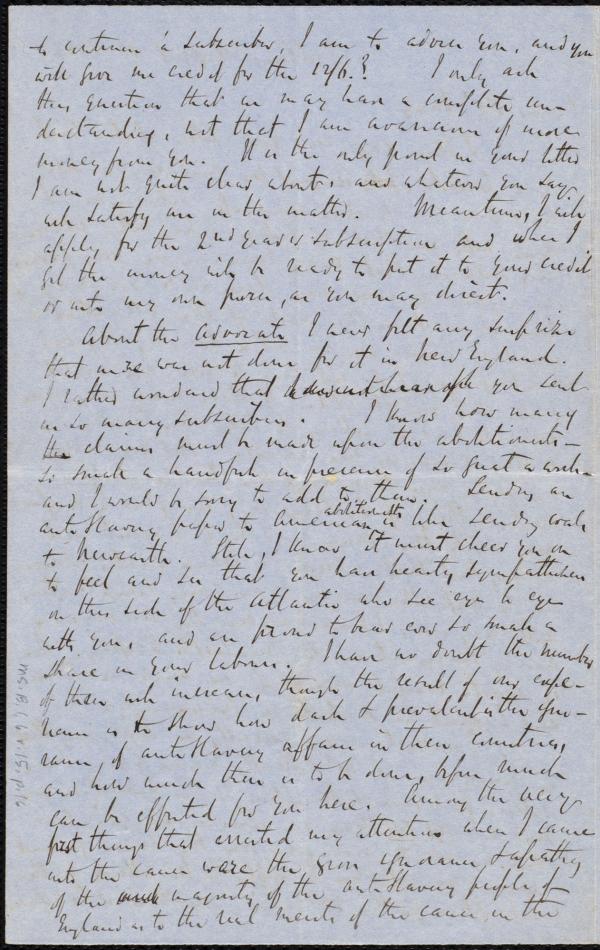 to continue a subscriber, I am to advise you, and you
will give me credit for the 12/6.? I only ask
this question that we may have a complete un-
derstanding, not that I am avaricious of more
money from you. It is the only point in your letter
I am not quite clear about, and whatever you say,
will satisfy me in the matter. Meantime, I will
apply for the 2nd year's subscription and when I
get the money will be ready to put it to your credit
or into my own purse, as you may direct.
About the Advocate I never felt any surprize
that more was not done for it in New England.
I rather wondered that you sent
us so many subscribers. I know how many
the claims must be made upon the abolitionists—
so small a handful in presence of so great a work—
and I would be sorry to add to them. Sending an
anti-slavery paper to American abolitionists is like sending coals
to Newcastle. Still, I know it must cheer you on
to feel and see that you have hearty sympathisers
on this side of the Atlantic who see eye to eye
with you, and are proud to bear ever so small a
share in your labours. I have no doubt the number
of these will increase, though the result of our expe-
rience is to show how dark & prevalent is the igno-
rance of anti-slavery affairs in these countries,
and how much there is to be done, before much
can be effected for you here. Among the very
first things that excited my attention when I came
into the cause were the gross ignorance & apathy
of the majority of the anti-slavery people of
England as to the real merits of the cause in the
MS. B. 1. 6 v. 15, p. 16